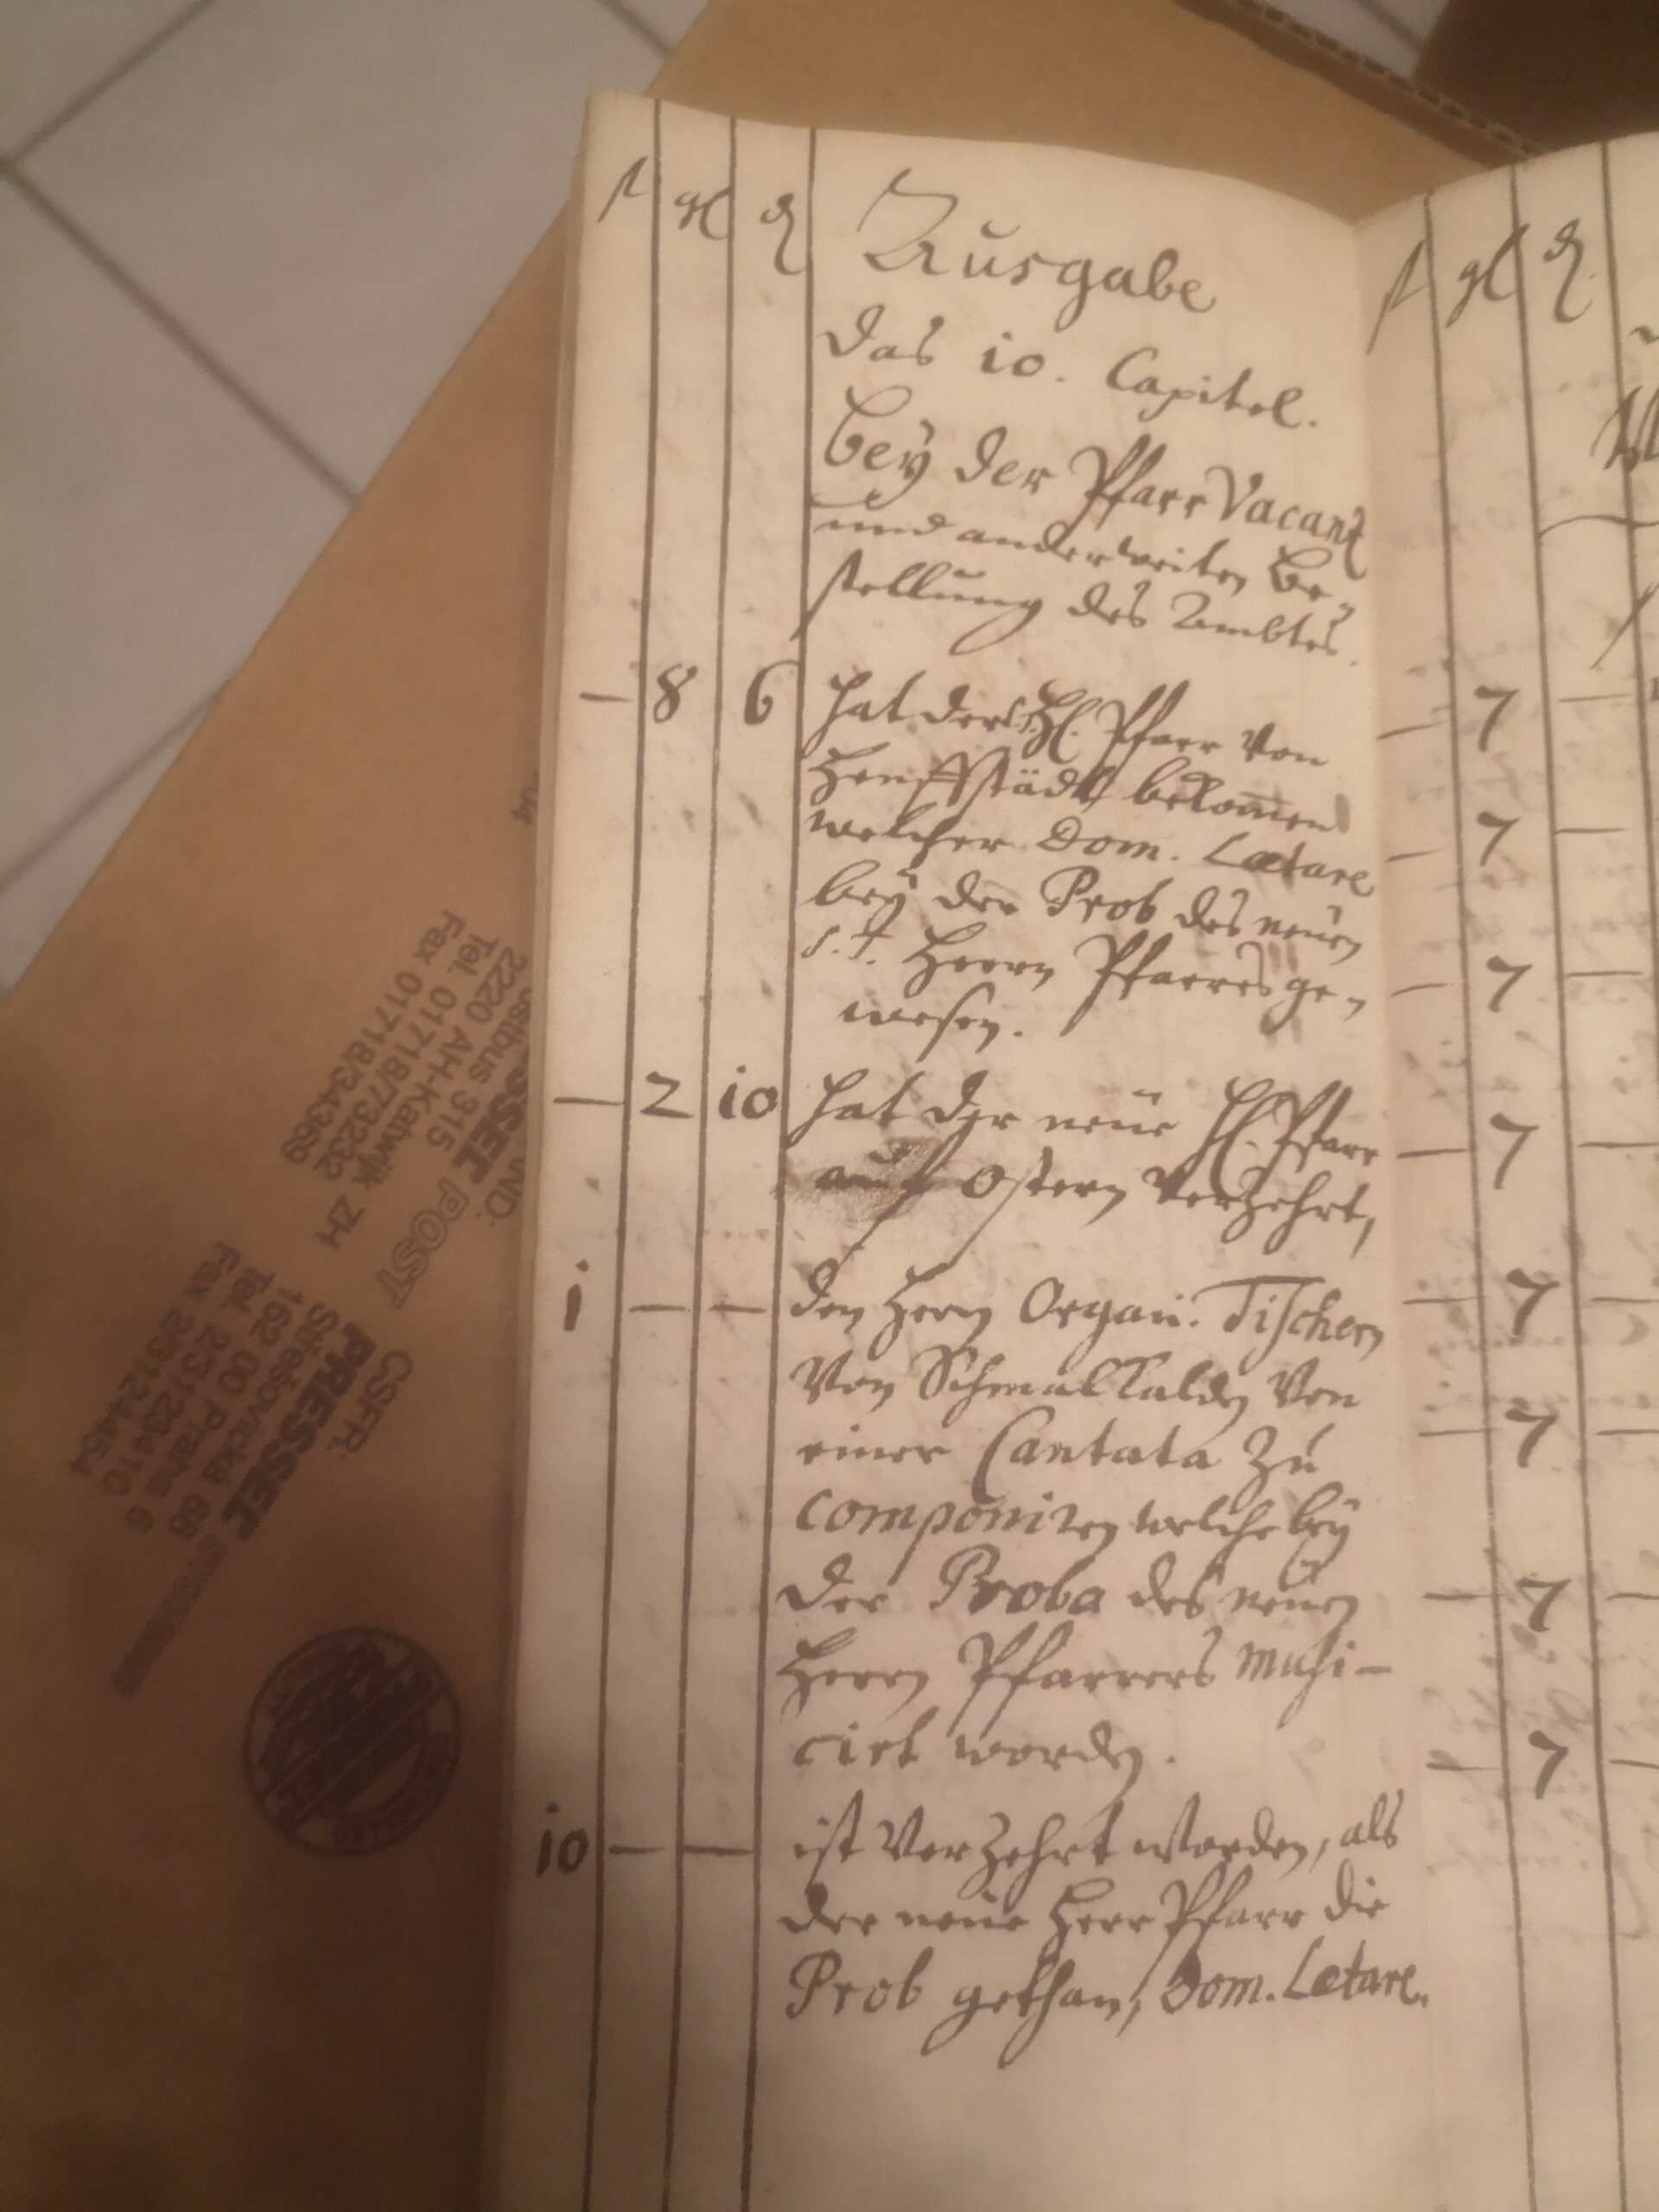 fl gl d
Ausgabe
Das 10. Capitel.
bey der Pfarr Vacanz
und anderweiten Be-
stellung des Ambtes.
— 8 6 hat der H. Pfarr von
Henffstädt bekom̄en
welcher Dom. Laetare
bey der Prob des neuen
s. t. Herrn Pfarres ge-
wesen.
— 2 10 hat der neue H. Pfarr
auf Ostern verzehrt,
1 — — den Herrn Organ. Tischern
von Schmalkalden von
einer Cantata zu
componiren welche bey
der Proba des neuen
Herrn Pfarrers musi-
cirt worden.
10 — — ist verzehrt worden, als
der neue Herr Pfarr die
Prob gethan, Dom. Laetare.
fl gl d
— 7 —
— 7 —
— 7 —
— 7 —
— 7 —
— 7 —
— 7 —
— 7 —
315
2220 AH-Katwijk ZH
Tel. 01718/73232
Fax 01718/34369
POST
CSFR:
PRESSEL
Střešovická 68
162 00 Praha 6
Tel. 2/3123410
Fax 2/3124454